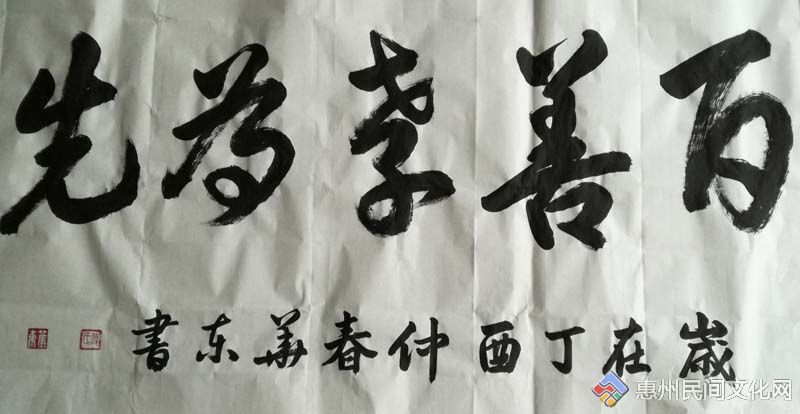 百善孝為先
歲在丁酉仲春華东書
惠州民间文化网